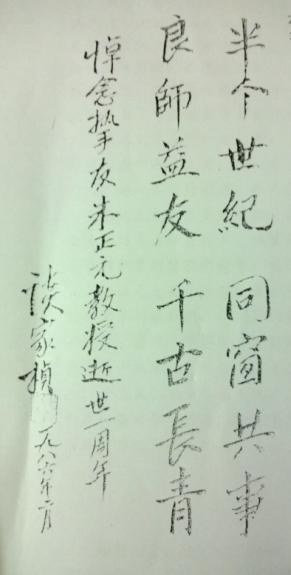 半个世紀 同窗共事
良師益友 千古長青
悼念摯友朱正元教授逝世一周年
談家楨 一九八六年二月